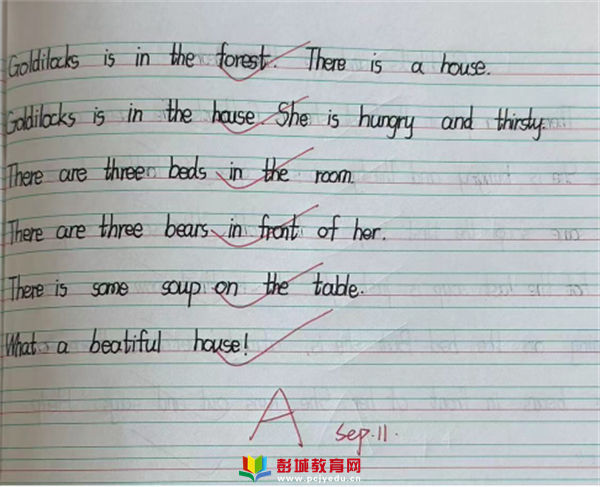 Goldilocks is in the forest. There is a house.
Goldilocks is in the house. She is hungry and thirsty.
There are three beds in the room.
There are three bears in front of her.
There is some soup on the table.
What a beatiful house!
A
Sep.11.
彭城教育网
www.pcjyedu.cn